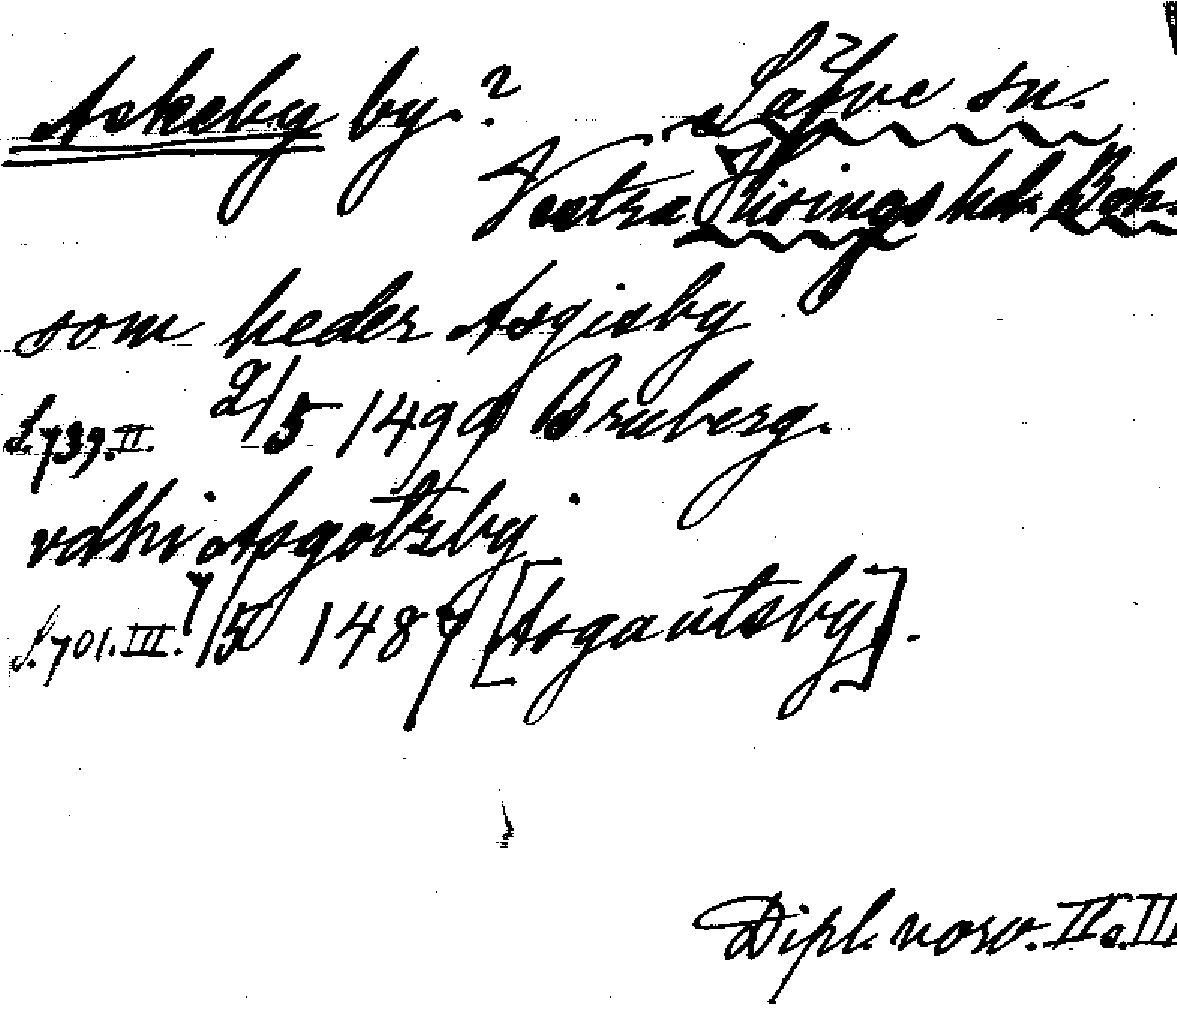 Askeby by.? Säfve sn.
Vestra Hisings hd. Boh.
som heder Asgisby
S. 739. II. 2/5 1499 Bruberg.
vdhi Asgotzby
S. 701. III. 7/5 1487 [Asgautsby].
Dipl. norv. II o. III